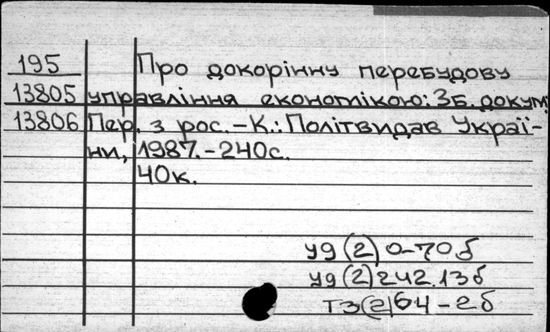 195 Про докорінну перебудову
13805 управління економікою: Зб. докум.
13806 Пер. з рос. - К.: Політвидав Украї-
ни, 1987. - 240с.
40к.
У9(2)0-70б
У9(2)242.13б
Т3(2)64-2б